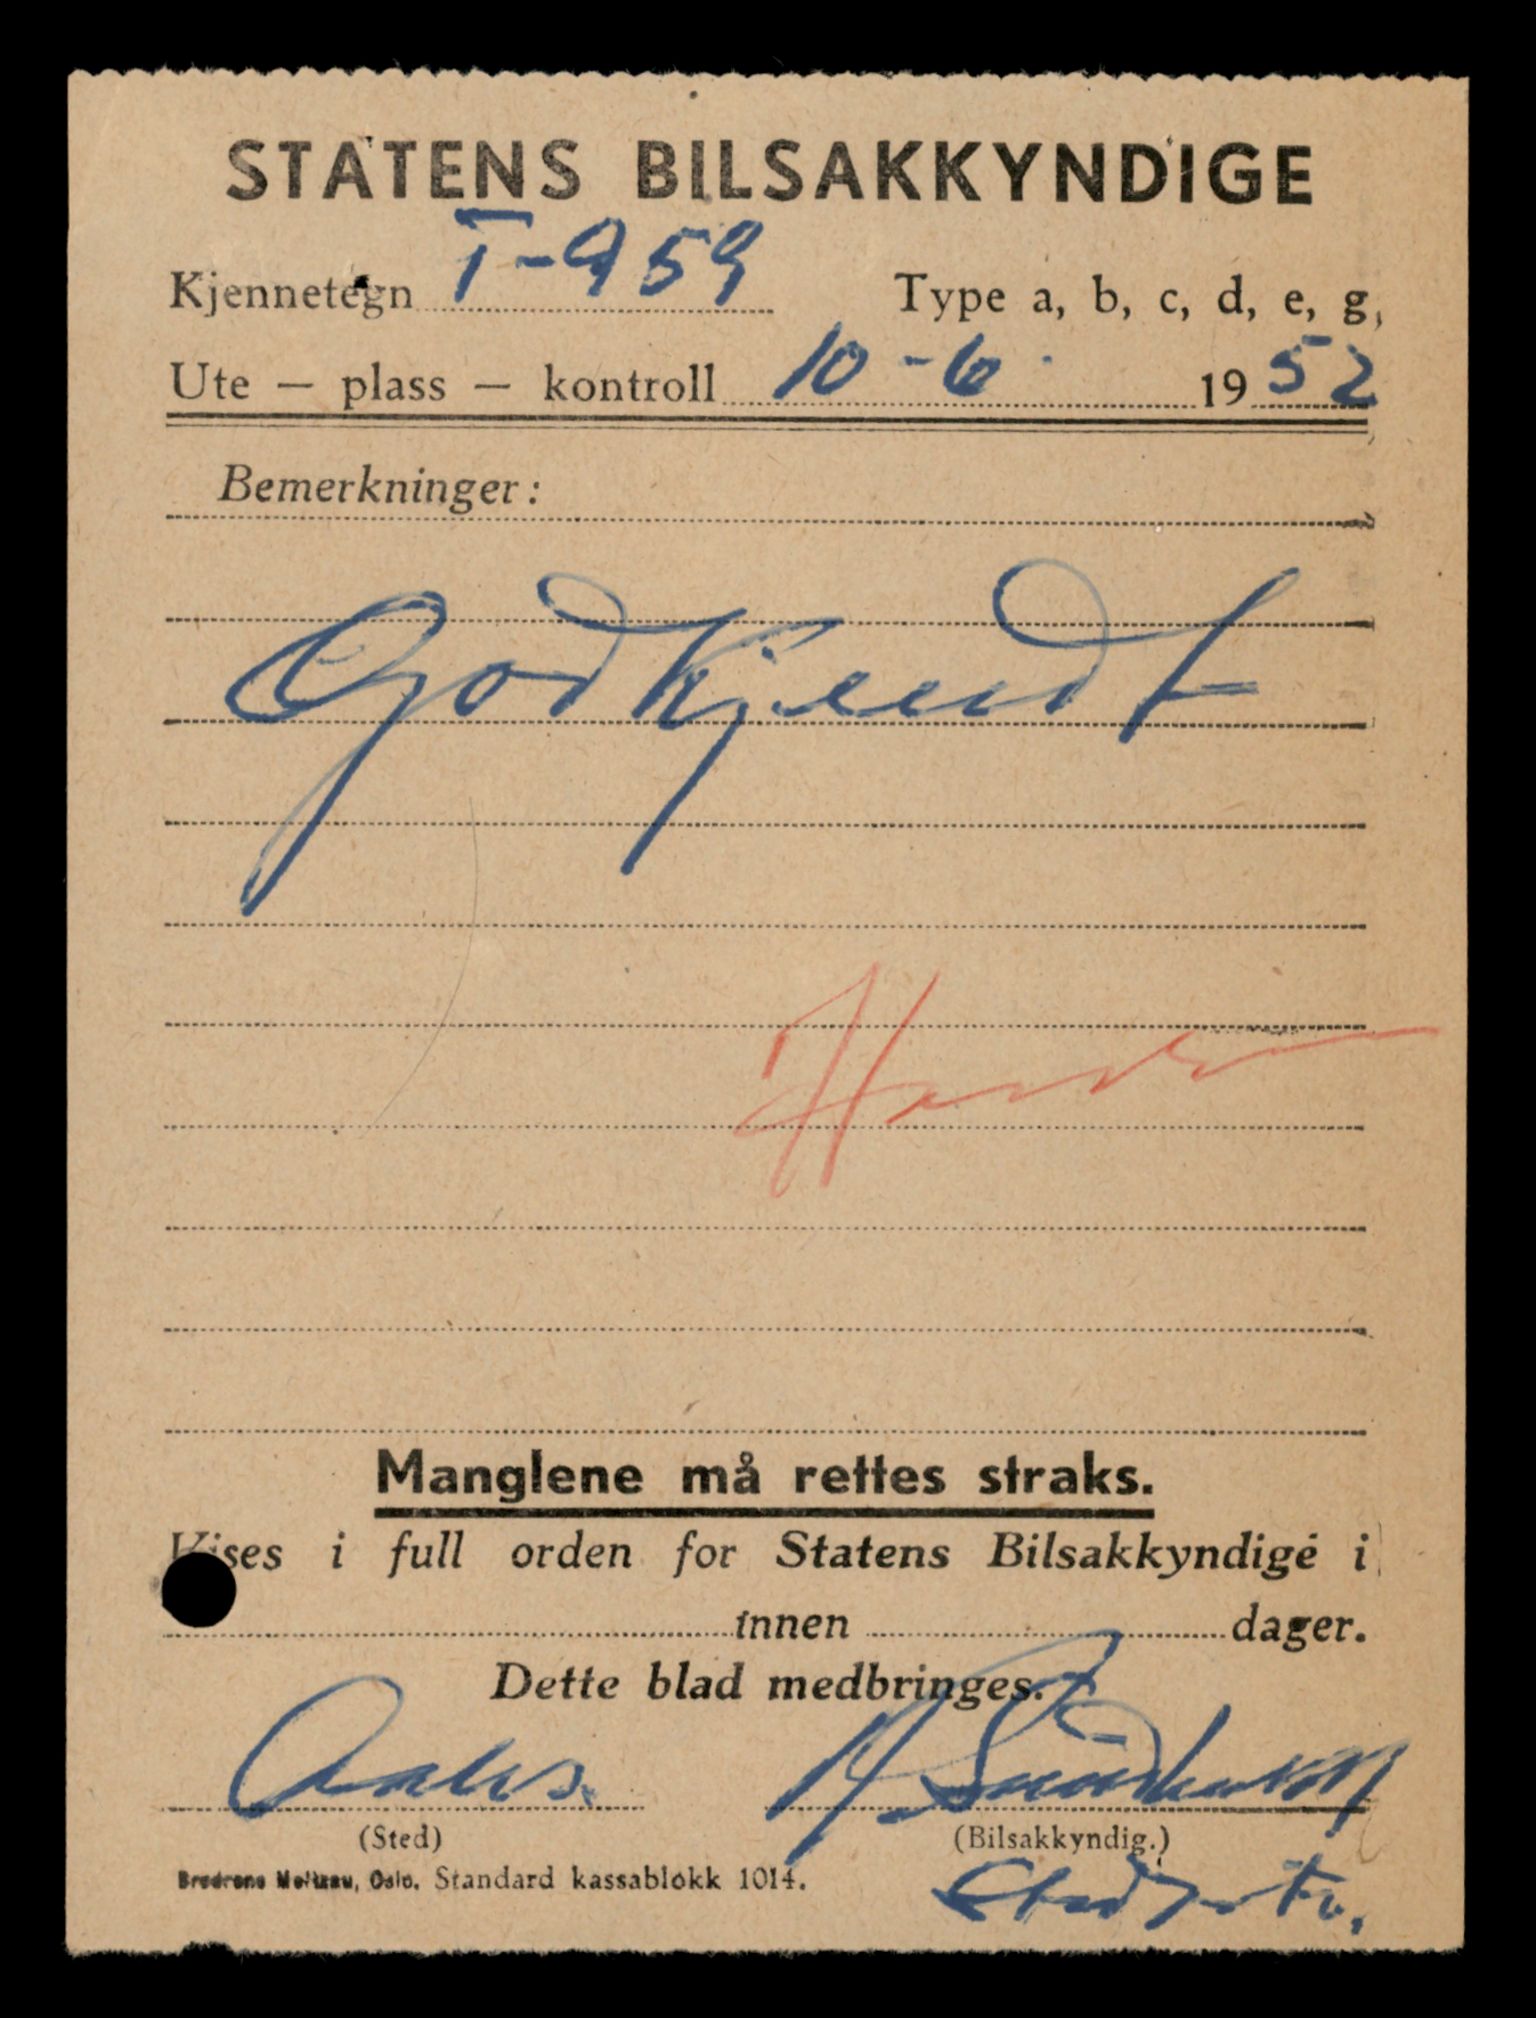 STATENS BILSAKKYNDIGE
Kjennetegn T-959 Type a, b, c, d, e, g,
Ute — plass — kontroll 10-6. 1952
Bemerkninger:
Godkjendt
Manglene må rettes straks.
Vises i full orden for Statens Bilsakkyndige i
innen dager.
Dette blad medbringes.
(Sted) (Bilsakkyndig.)
Brødrene Meltzau, Oslo. Standard kassablokk 1014.